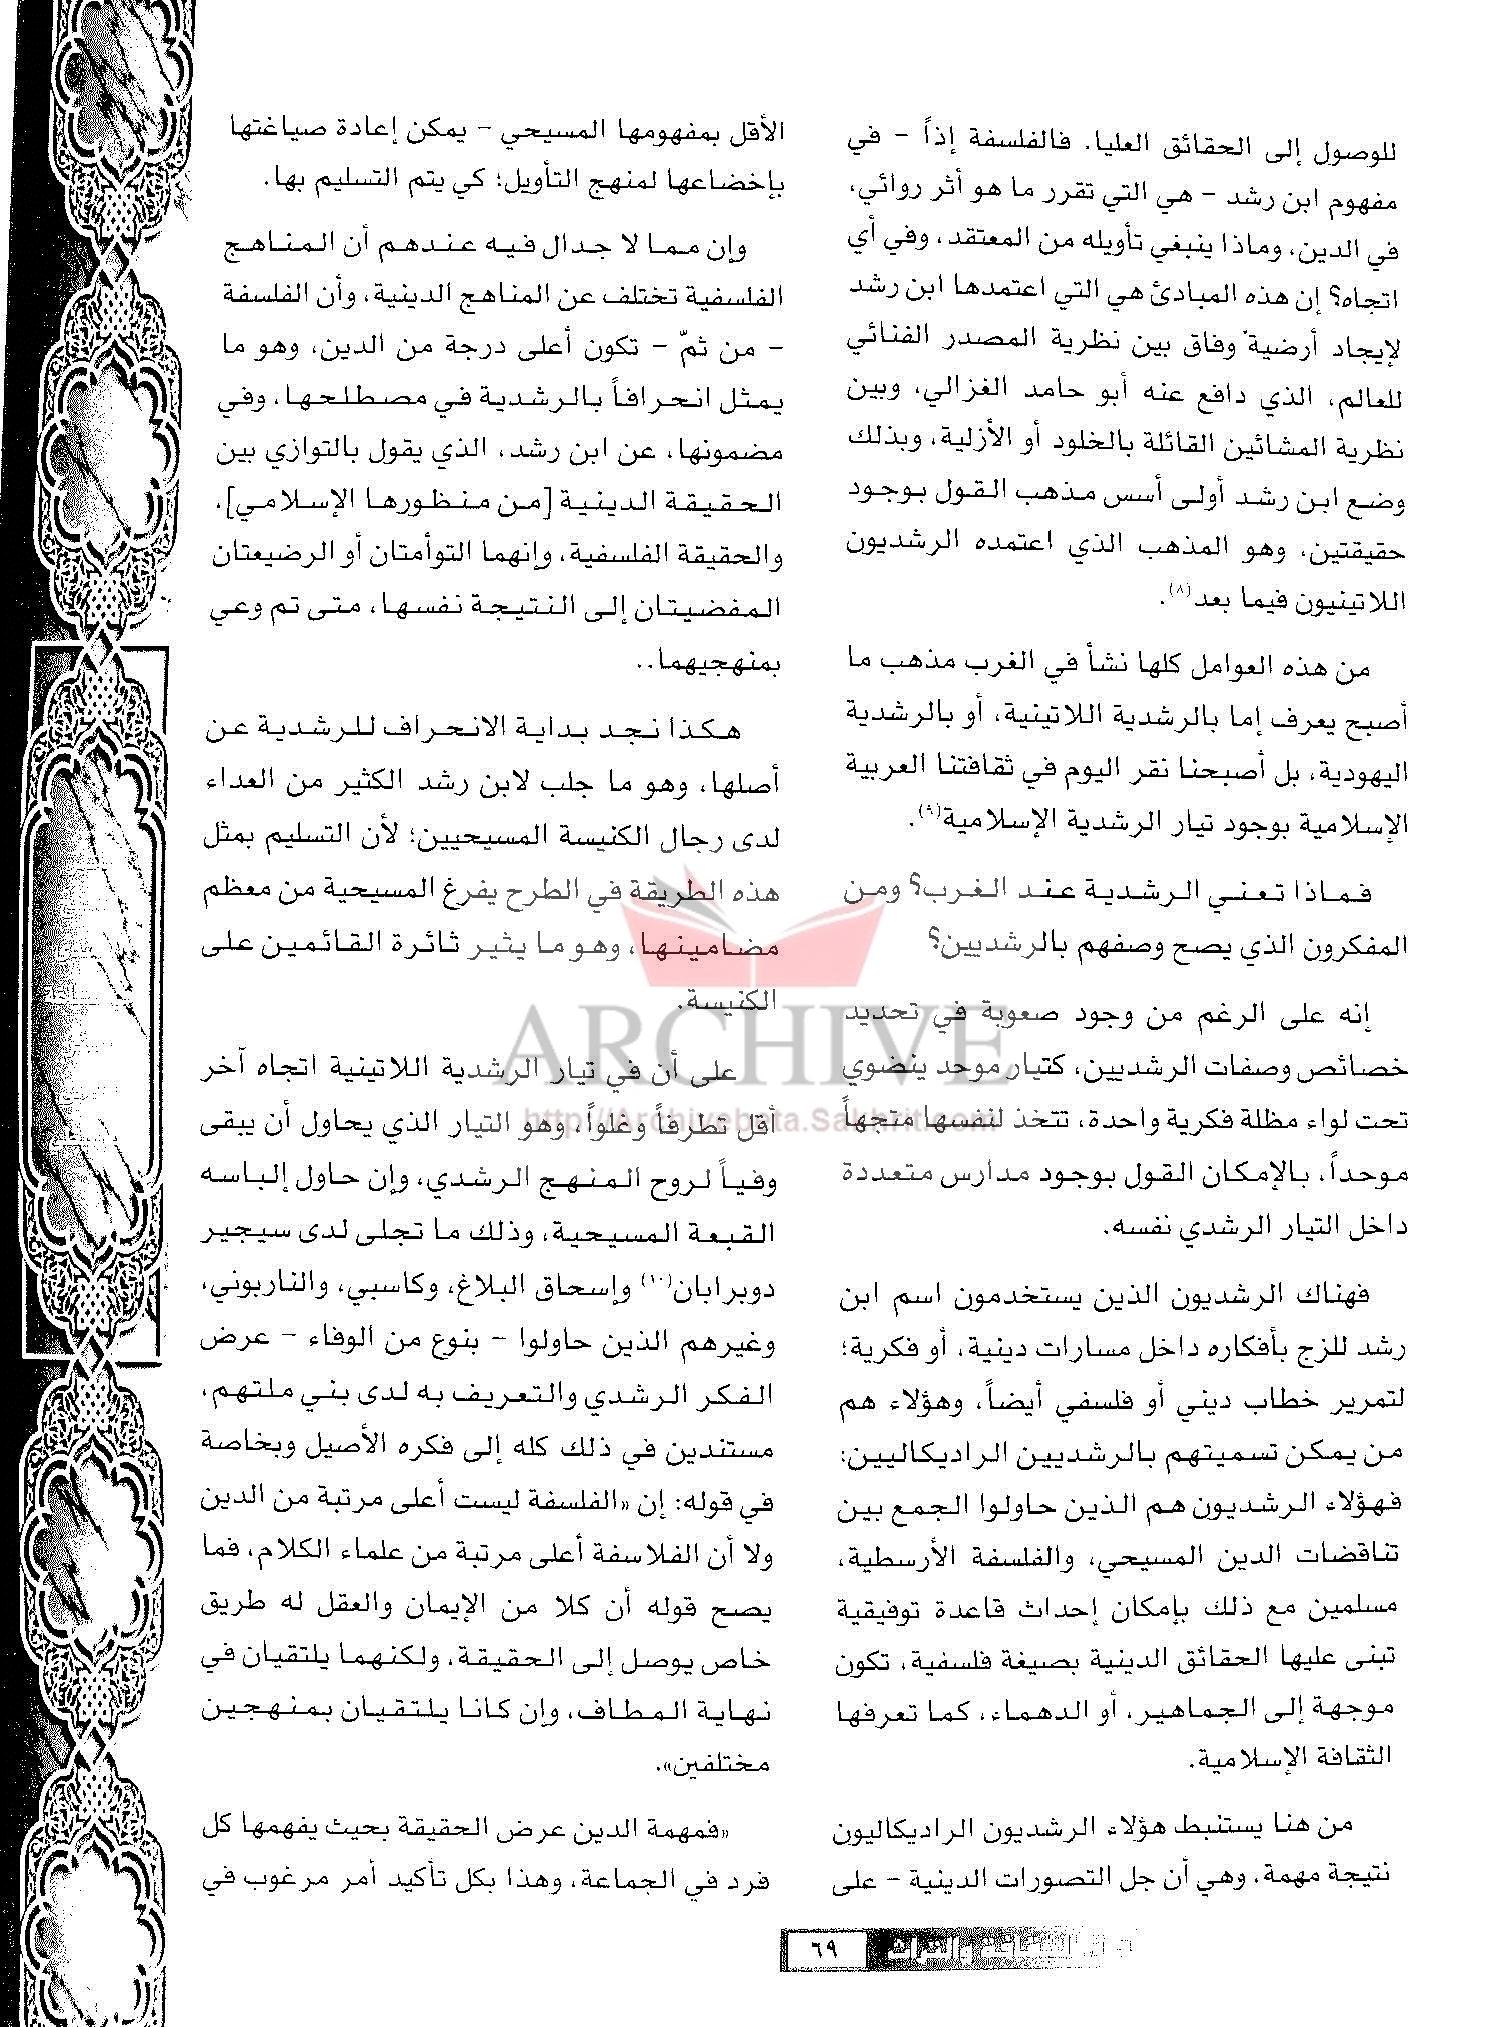 للوصول إلى الحقائق العليا. فالفلسفة إذاً - في
مفهوم ابن رشد - هي التي تقرر ما هو أثر روائي،
في الدين، وماذا ينبغي تأويله من المعتقد، وفي أي
اتجاه؟ إن هذه المبادئ هي التي اعتمدها ابن رشد
لإيجاد أرضية وفاق بين نظرية المصدر الفنائي
للعالم، الذي دافع عنه أبو حامد الغزالي، وبين
نظرية المشائين القائلة بالخلود أو الأزلية، وبذلك
وضع ابن رشد أولى أسس مذهب القول بوجود
حقيقتين، وهو المذهب الذي اعتمده الرشديون
اللاتينيون فيما بعد(٨).
من هذه العوامل كلها نشأ في الغرب مذهب ما
أصبح يعرف إما بالرشدية اللاتينية، أو بالرشدية
اليهودية، بل أصبحنا نقر اليوم في ثقافتنا العربية
الإسلامية بوجود تيار الرشدية الإسلامية(٩).
فماذا تعني الرشدية عند الغرب؟ ومن
المفكرون الذي يصح وصفهم بالرشديين؟
إنه على الرغم من وجود صعوبة في تحديد
خصائص وصفات الرشديين، كتيار موحد ينضوي
تحت لواء مظلة فكرية واحدة، تتخذ لنفسها متجهاً
موحداً، بالإمكان القول بوجود مدارس متعددة
داخل التيار الرشدي نفسه.
فهناك الرشديون الذين يستخدمون اسم ابن
رشد للزج بأفكاره داخل مسارات دينية، أو فكرية؛
لتمرير خطاب ديني أو فلسفي أيضاً، وهؤلاء هم
من يمكن تسميتهم بالرشديين الراديكاليين:
فهؤلاء الرشديون هم الذين حاولوا الجمع بين
تناقضات الدين المسيحي، والفلسفة الأرسطية،
مسلمين مع ذلك بإمكان إحداث قاعدة توفيقية
تبنى عليها الحقائق الدينية بصيغة فلسفية، تكون
موجهة إلى الجماهير، أو الدهماء، كما تعرفها
الثقافة الإسلامية.
من هنا يستنبط هؤلاء الرشديون الراديكاليون
نتيجة مهمة، وهي أن جل التصورات الدينية - على
الأقل بمفهومها المسيحي - يمكن إعادة صياغتها
بإخضاعها لمنهج التأويل؛ كي يتم التسليم بها.
وإن مما لا جدال فيه عندهم أن المناهج
الفلسفية تختلف عن المناهج الدينية، وأن الفلسفة
- من ثمّ - تكون أعلى درجة من الدين، وهو ما
يمثل انحرافاً بالرشدية في مصطلحها، وفي
مضمونها، عن ابن رشد، الذي يقول بالتوازي بين
الحقيقة الدينية [من منظورها الإسلامي]،
والحقيقة الفلسفية، وإنهما التوأمتان أو الرضيعتان
المفضيتان إلى النتيجة نفسها، متى تم وعي
بمنهجيهما..
هكذا نجد بداية الانحراف للرشدية عن
أصلها، وهو ما جلب لابن رشد الكثير من العداء
لدى رجال الكنيسة المسيحيين؛ لأن التسليم بمثل
هذه الطريقة في الطرح يفرغ المسيحية من معظم
مضامينها، وهو ما يثير ثائرة القائمين على
الكنيسة.
على أن في تيار الرشدية اللاتينية اتجاه آخر
أقل تطرفاً وغلواً، وهو التيار الذي يحاول أن يبقى
وفياً لروح المنهج الرشدي، وإن حاول إلباسه
القبعة المسيحية، وذلك ما تجلى لدى سيجير
دوبرابان(١٠) وإسحاق البلاغ، وكاسبي، والناربوني،
وغيرهم الذين حاولوا - بنوع من الوفاء - عرض
الفكر الرشدي والتعريف به لدى بني ملتهم،
مستندين في ذلك كله إلى فكره الأصيل وبخاصة
في قوله: إن «الفلسفة ليست أعلى مرتبة من الدين
ولا أن الفلاسفة أعلى مرتبة من علماء الكلام، فما
يصح قوله أن كلا من الإيمان والعقل له طريق
خاص يوصل إلى الحقيقة، ولكنهما يلتقيان في
نهاية المطاف، وإن كانا يلتقيان بمنهجين
مختلفين».
«فمهمة الدين عرض الحقيقة بحيث يفهمها كل
فرد في الجماعة، وهذا بكل تأكيد أمر مرغوب في
ARCHIVE
http://Archivebeta.Sakhrit.com
٦٩
الثقافة والتراث